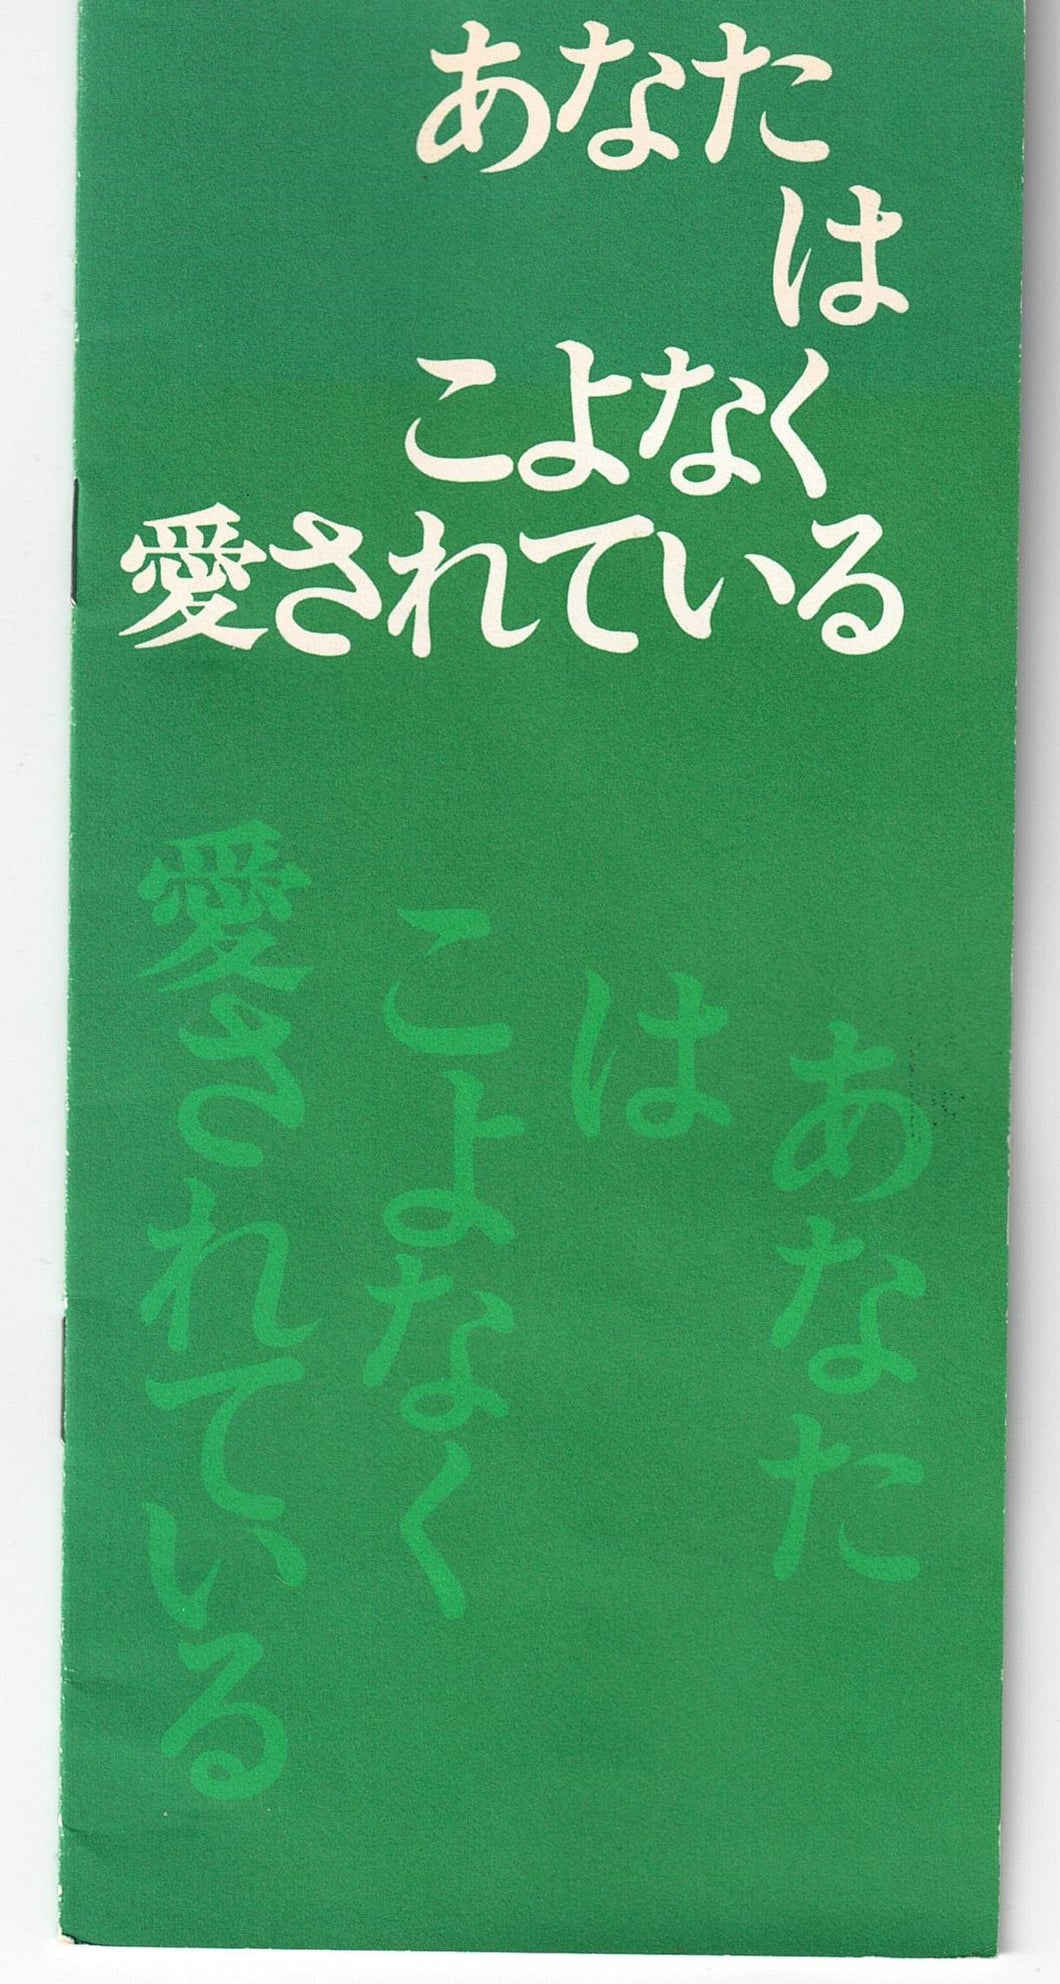 あなた
は
こよなく
愛されている
あなた
は
こよなく
愛されている